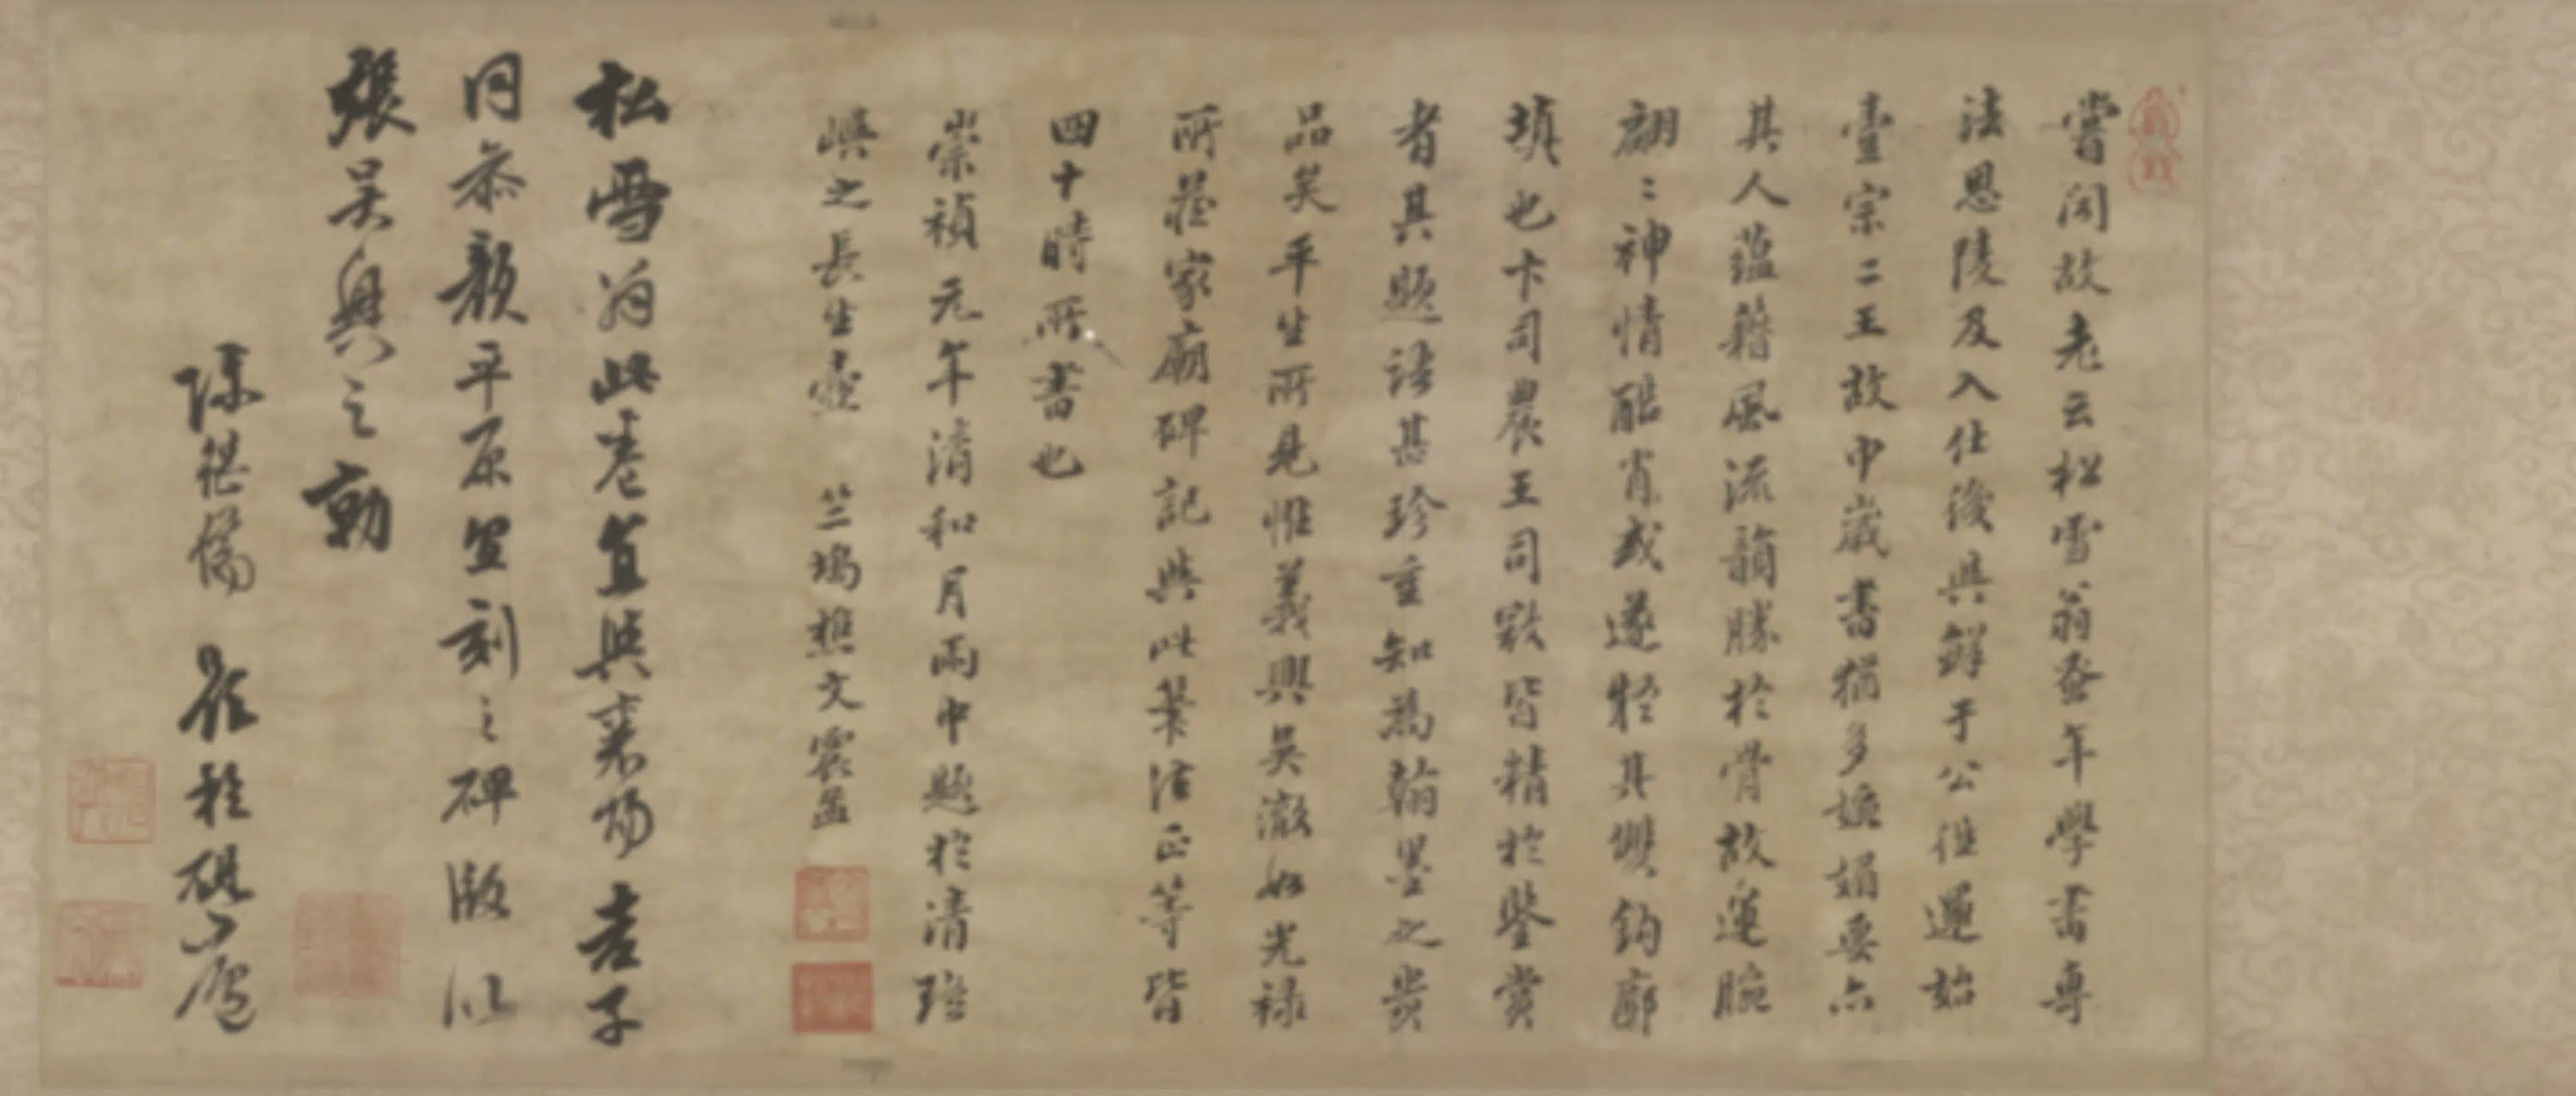 嘗聞故老云松雪翁蚤年學書專
法思陵及入仕後與鮮于公徃還始
臺宗二王故中歲書猶多媚要亦
其人蘊藉風流韻勝於骨故運腕
翩〻神情酷肖或遂疑其雙鈎廓
填也卞司農王司寇皆精於鑒賞
者其題語甚珍重知為翰墨之貴
品矣平生所見惟義興吳澈如光祿
所藏家廟碑記與此筆法正等皆
四十時所書也
崇禎元年清和月雨中題於清瑤
嶼之長生壺 竺塢樵文震孟
松雪翁此卷宜與裏陽老子
同參顏平原坐刻之碑版以
張吳興之勳
陳繼儒 於硯廬